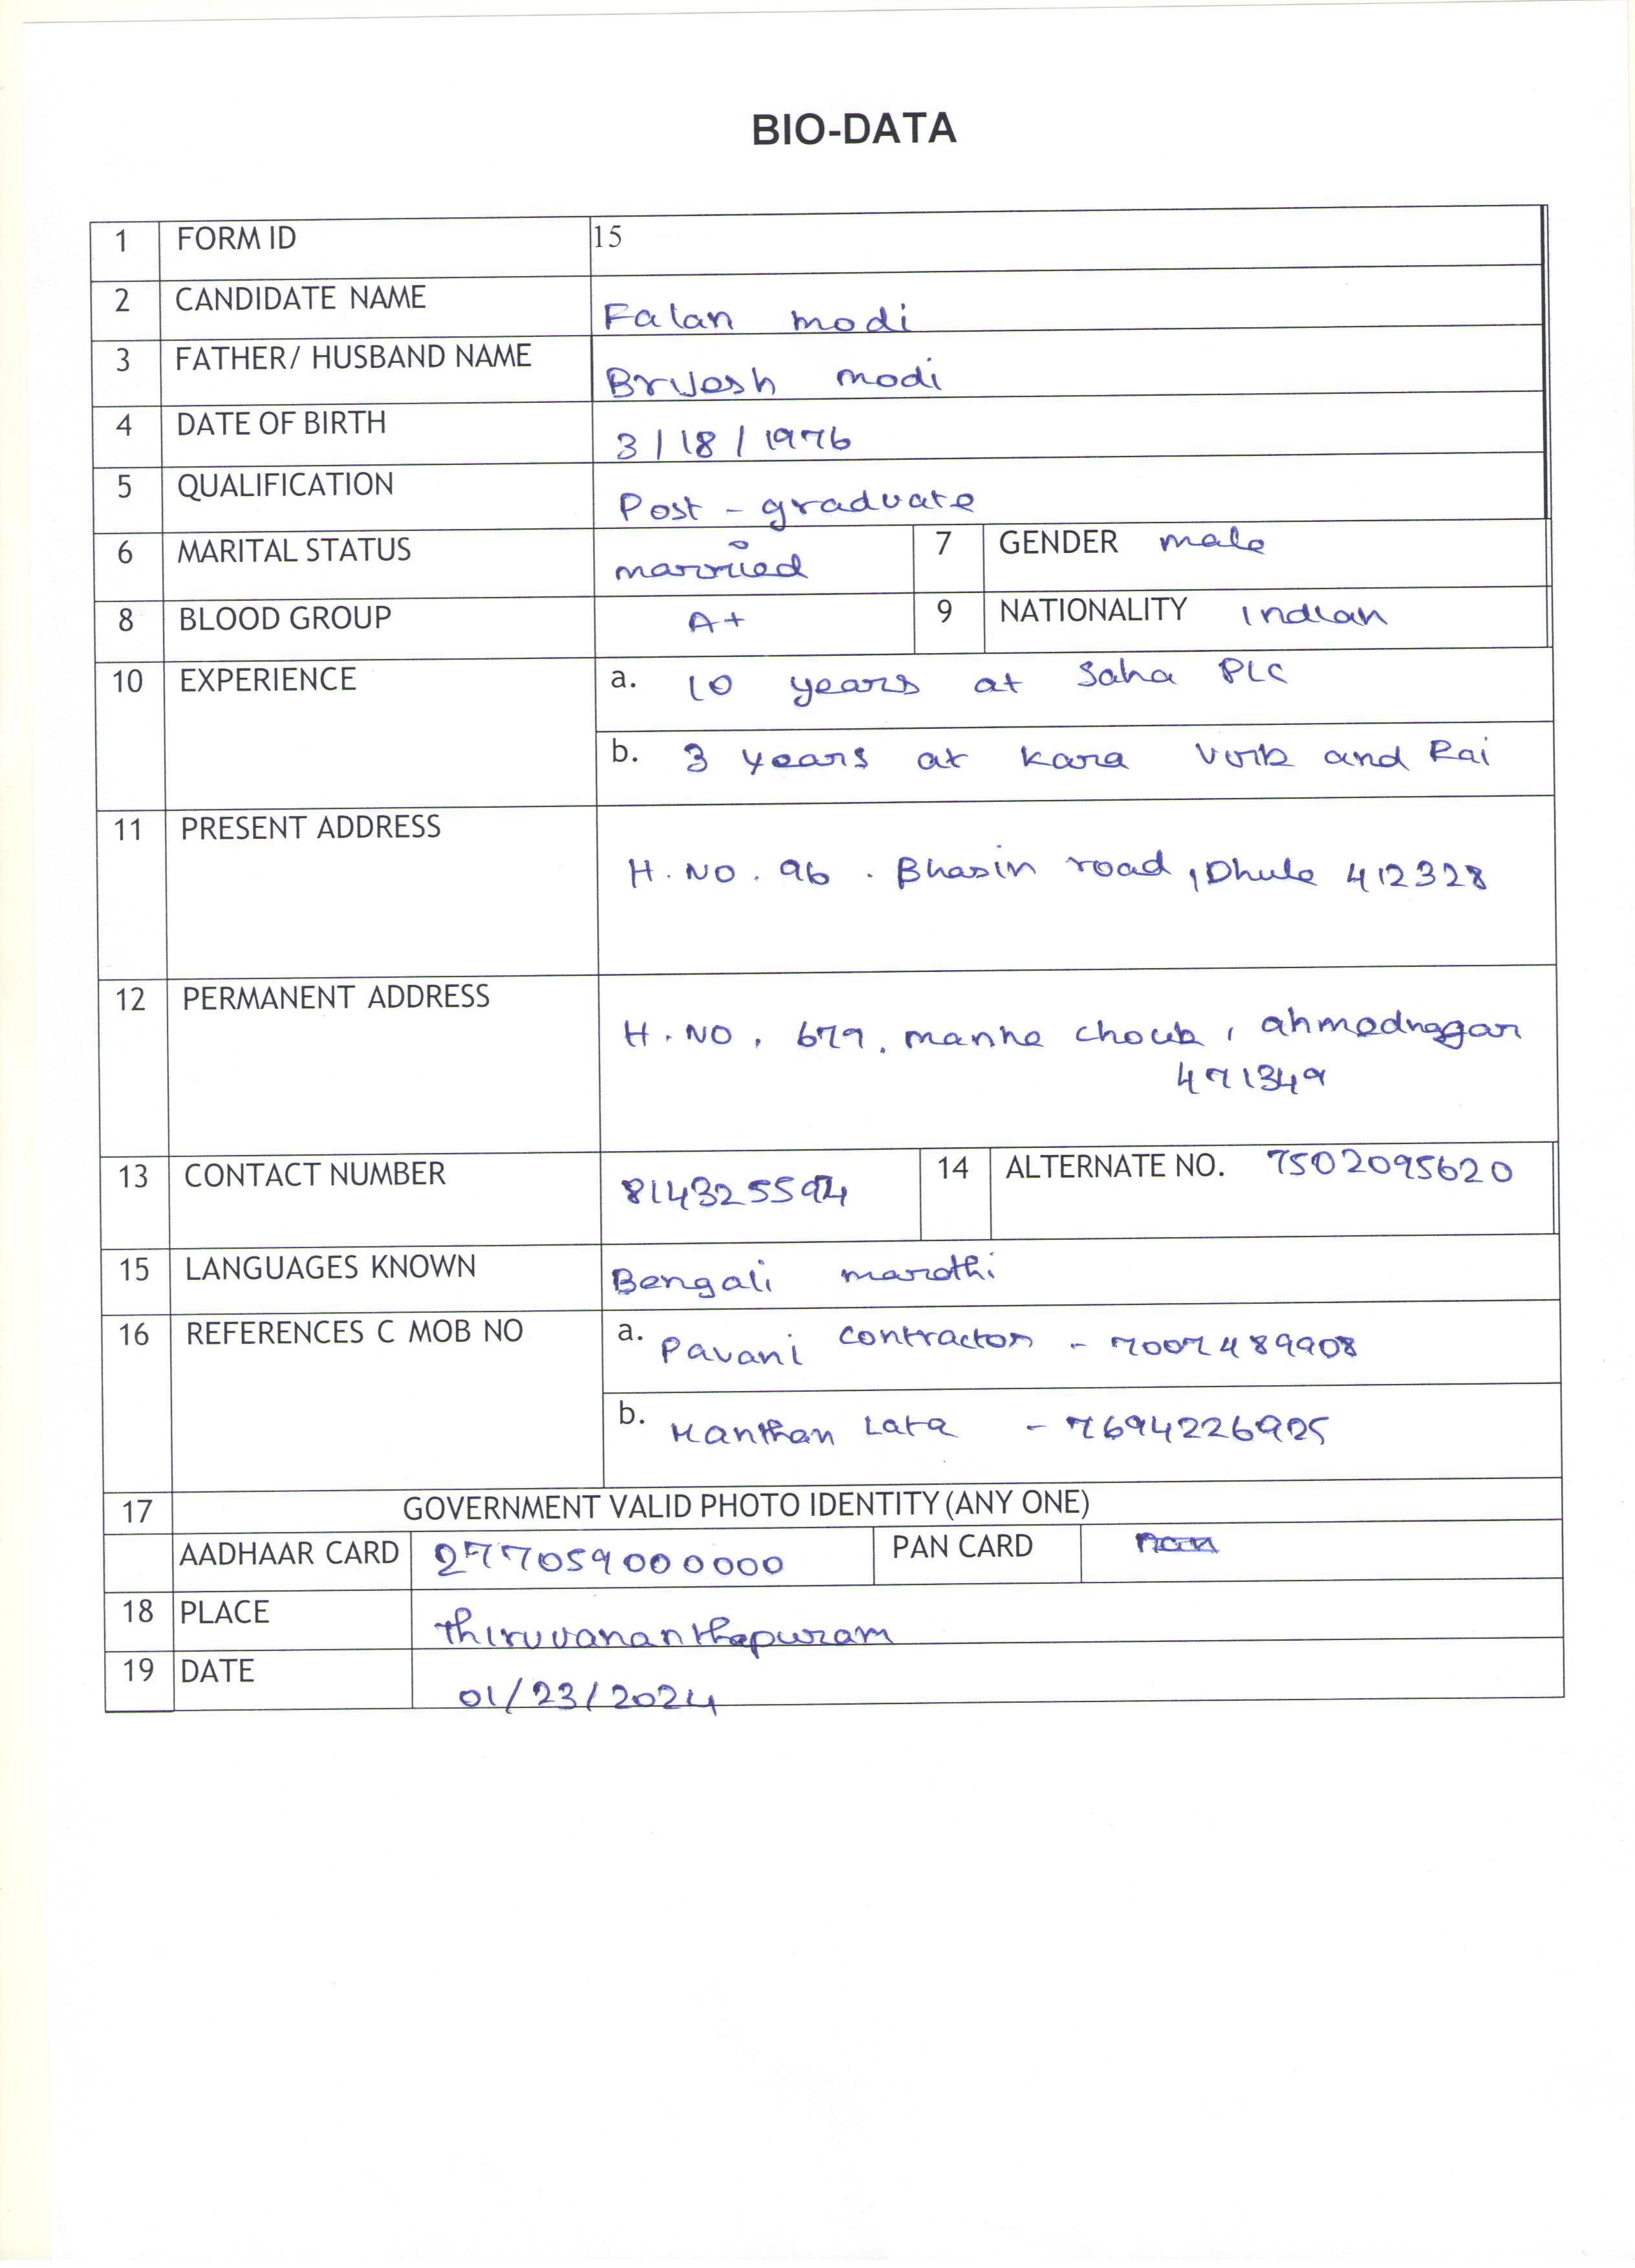 BIO-DATA
1 FORM ID 15
2 CANDIDATE NAME Falan modi
3 FATHER/ HUSBAND NAME Brijesh modi
4 DATE OF BIRTH 3/18/1976
5 QUALIFICATION Post-graduate
6 MARITAL STATUS married 7 GENDER male
8 BLOOD GROUP A+ 9 NATIONALITY Indian
10 EXPERIENCE a. 10 years at Saha PLC
b. 3 years at Kara Virk and Rai
11 PRESENT ADDRESS
H.NO. 96. Bhasin road, Dhule 412328
12 PERMANENT ADDRESS
H.NO, 679, manne chowk, ahmednagar
471349
13 CONTACT NUMBER 8143255594 14 ALTERNATE NO. 7502095620
15 LANGUAGES KNOWN Bengali marathi
16 REFERENCES C MOB NO a. Pavani contractor - 7007489908
b. Manthan Lata - 7694226925
17 GOVERNMENT VALID PHOTO IDENTITY (ANY ONE)
AADHAAR CARD 277059000000 PAN CARD
18 PLACE Thiruvananthapuram
19 DATE 01/23/2024